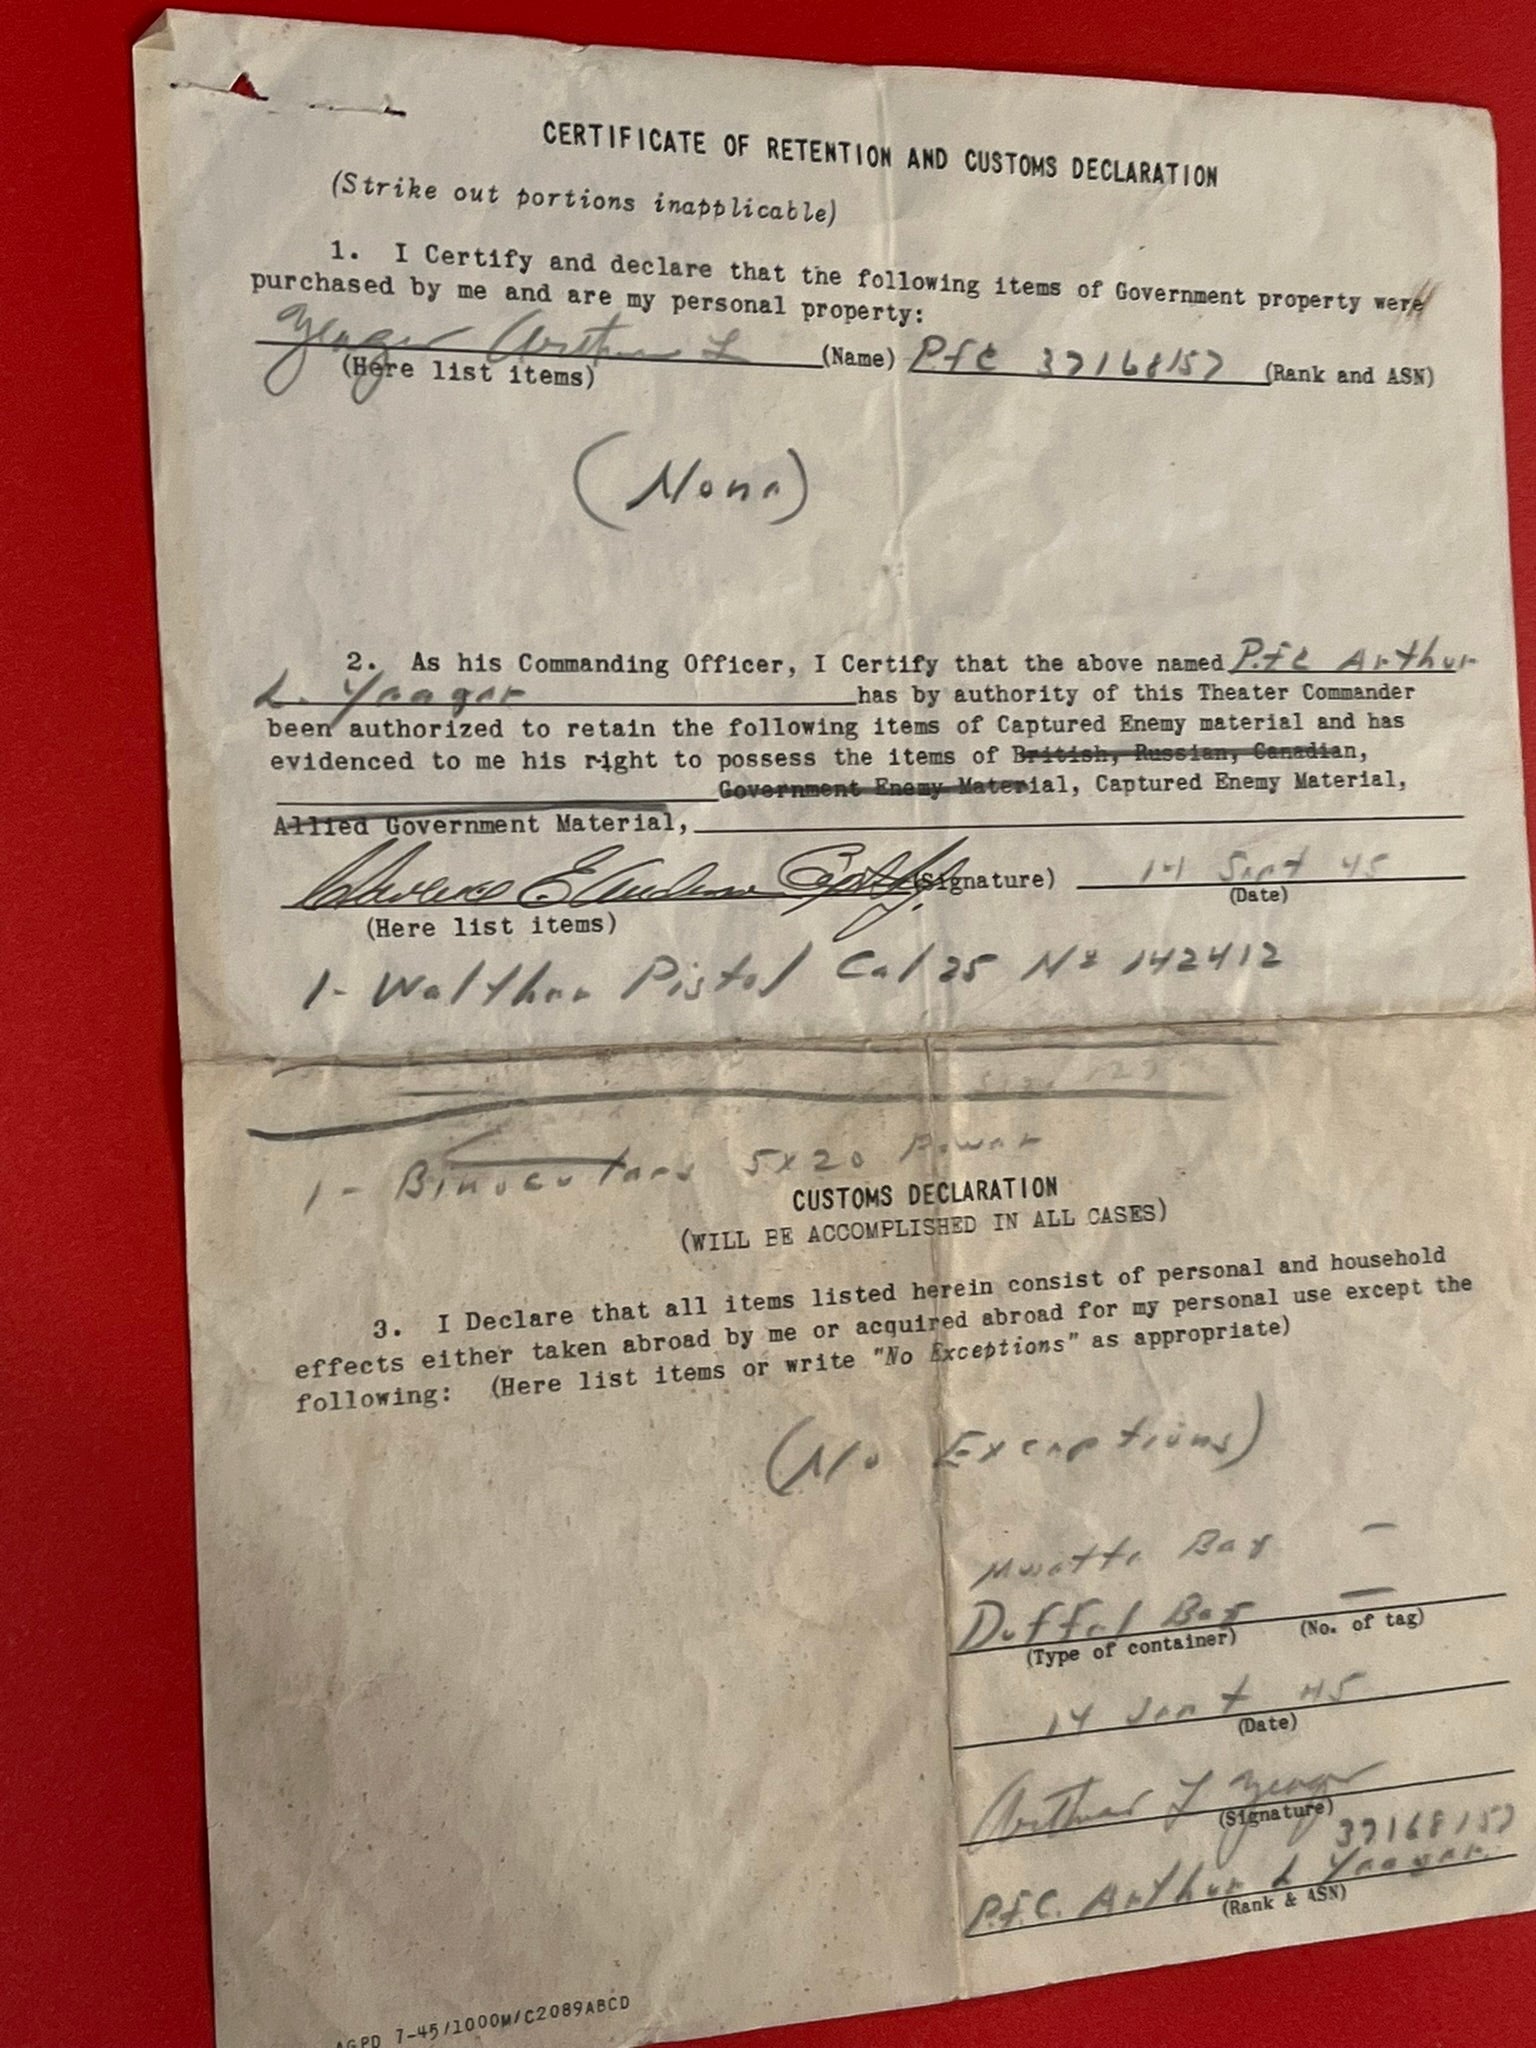 CERTIFICATE OF RETENTION AND CUSTOMS DECLARATION
(Strike out portions inapplicable)
1. I Certify and declare that the following items of Government property were
purchased by me and are my personal property:
Yeager Arthur L (Name) Pfc 37168157 (Rank and ASN)
(Here list items)
(None)
2. As his Commanding Officer, I Certify that the above named Pfc Arthur
L. Yeager has by authority of this Theater Commander
been authorized to retain the following items of Captured Enemy material and has
evidenced to me his right to possess the items of British, Russian, Canadian,
Government Enemy Material, Captured Enemy Material,
Allied Government Material,
Clarence E (Signature) 14 Sept 45
(Date)
(Here list items)
1- Walther Pistol Cal 25 No 142412
1- Binoculars 5x20 Power
CUSTOMS DECLARATION
(WILL BE ACCOMPLISHED IN ALL CASES)
3. I Declare that all items listed herein consist of personal and household
effects either taken abroad by me or acquired abroad for my personal use except the
following: (Here list items or write "No Exceptions" as appropriate)
(No Exceptions)
Musette Bag -
Duffel Bag -
(Type of container) (No. of tag)
14 Sept 45
(Date)
Arthur L Yeager
(Signature)
37168157
Pfc. Arthur L Yeager
(Rank & ASN)
AGPD 7-45/1000M/C2089ABCD